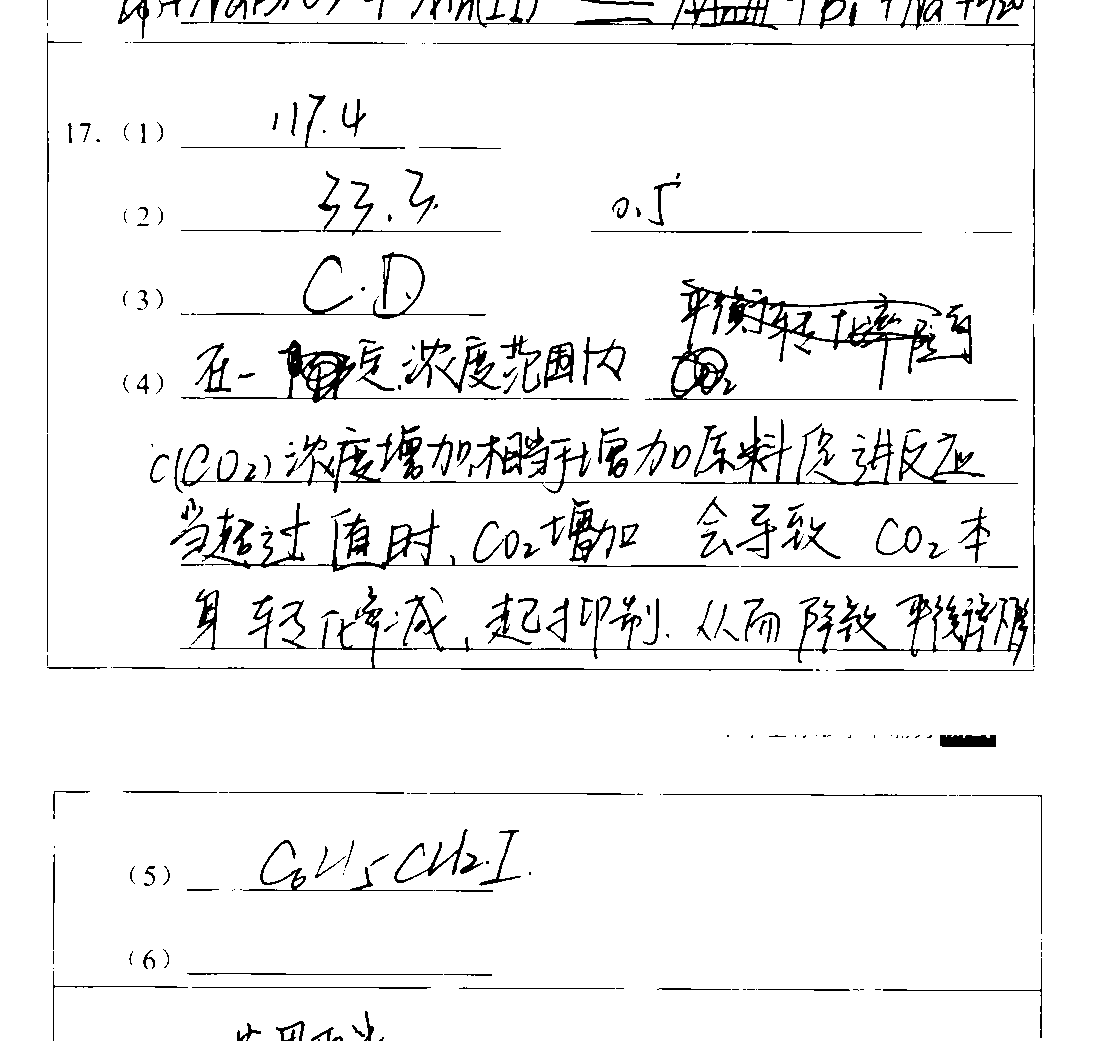 17.（1） 117.4
（2） 33.3 0.5
（3） C.D
（4） 在一定浓度范围内
c(CO₂)浓度增加,相当于增加原料促进反应
当超过值时, CO₂增加 会导致 CO₂本
身转化率减, 起抑制. 从而 平衡
（5） C₆H₅CH₂I.
（6）